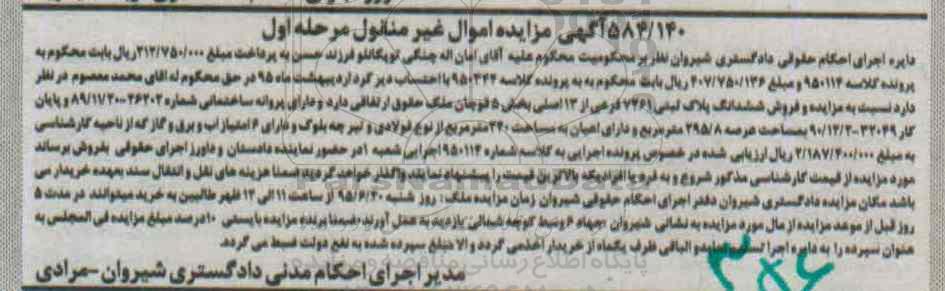 ۵۸۴/۱۴۰ آگهی مزایده اموال غیر منقول مرحله اول
دایره اجرای احکام حقوقی دادگستری شیروان نظر بر محکومیت محکوم علیه آقای امان اله چنگی توپکانلو فرزند حسن به پرداخت مبلغ ۳۱۲/۷۵۰/۰۰۰ ریال بابت محکوم به
پرونده کلاسه ۹۵۰۱۱۲ و مبلغ ۴۰۷/۷۵۰/۱۳۶ ریال بابت محکوم به به پرونده کلاسه ۹۵۰۳۴۴ با احتساب دیرکرد اردیبهشت ماه ۹۵ در حق محکوم له آقای محمد معصوم در نظر
دارد نسبت به مزایده و فروش ششدانگ پلاک ثبتی ۷۴۶۱ فرعی از ۱۳ اصلی بخش ۵ قوچان ملک حقوق ارتفاقی دارد و دارای پروانه ساختمانی شماره ۳۶۲۰۲-۸۹/۱۱/۲۰ و پایان
کار ۳۲۰۴۹-۹۰/۱۲/۲ بمساحت عرصه ۲۹۵/۸ مترمربع و دارای اعیان به مساحت ۲۲۰ مترمربع از نوع فولادی و تیرچه بلوک و دارای ۶ امتیاز آب و برق و گاز که از ناحیه کارشناسی
به مبلغ ۲/۱۸۷/۴۰۰/۰۰۰ ریال ارزیابی شده در خصوص پرونده اجرایی به کلاسه شماره ۹۵۰۱۱۲ اجرایی شعبه ۱ در حضور نماینده دادستان و داورز اجرای حقوقی بفروش برساند
مورد مزایده از قیمت کارشناسی مذکور شروع و به فرد یا افرادیکه بالاترین قیمت را پیشنهاد نمایند واگذار خواهد گردید ضمنا هزینه های نقل و انتقال سند بعهده خریدار می
باشد مکان مزایده دادگستری شیروان دفتر اجرای احکام حقوقی شیروان زمان مزایده ملک: روز شنبه ۹۵/۶/۲۰ از ساعت ۱۱ الی ۱۲ ظهر طالبین به خرید میتوانند در مدت ۵
روز قبل از موعد مزایده از مال مورد مزایده به نشانی شیروان وسط کوچه شمالی بازدید به عمل آورند ضمنا برنده مزایده بایستی ۱۰درصد مبلغ مزایده فی المجلس به
عنوان سپرده را به دایره اجرا الباقی ظرف یکماه از خریدار اخذ می گردد و الا مبلغ سپرده شده به نفع دولت ضبط می گردد.
مدیر اجرای احکام مدنی دادگستری شیروان -مرادی
ParsNamadData
پایگاه اطلاع رسانی مناقصه و مزایده